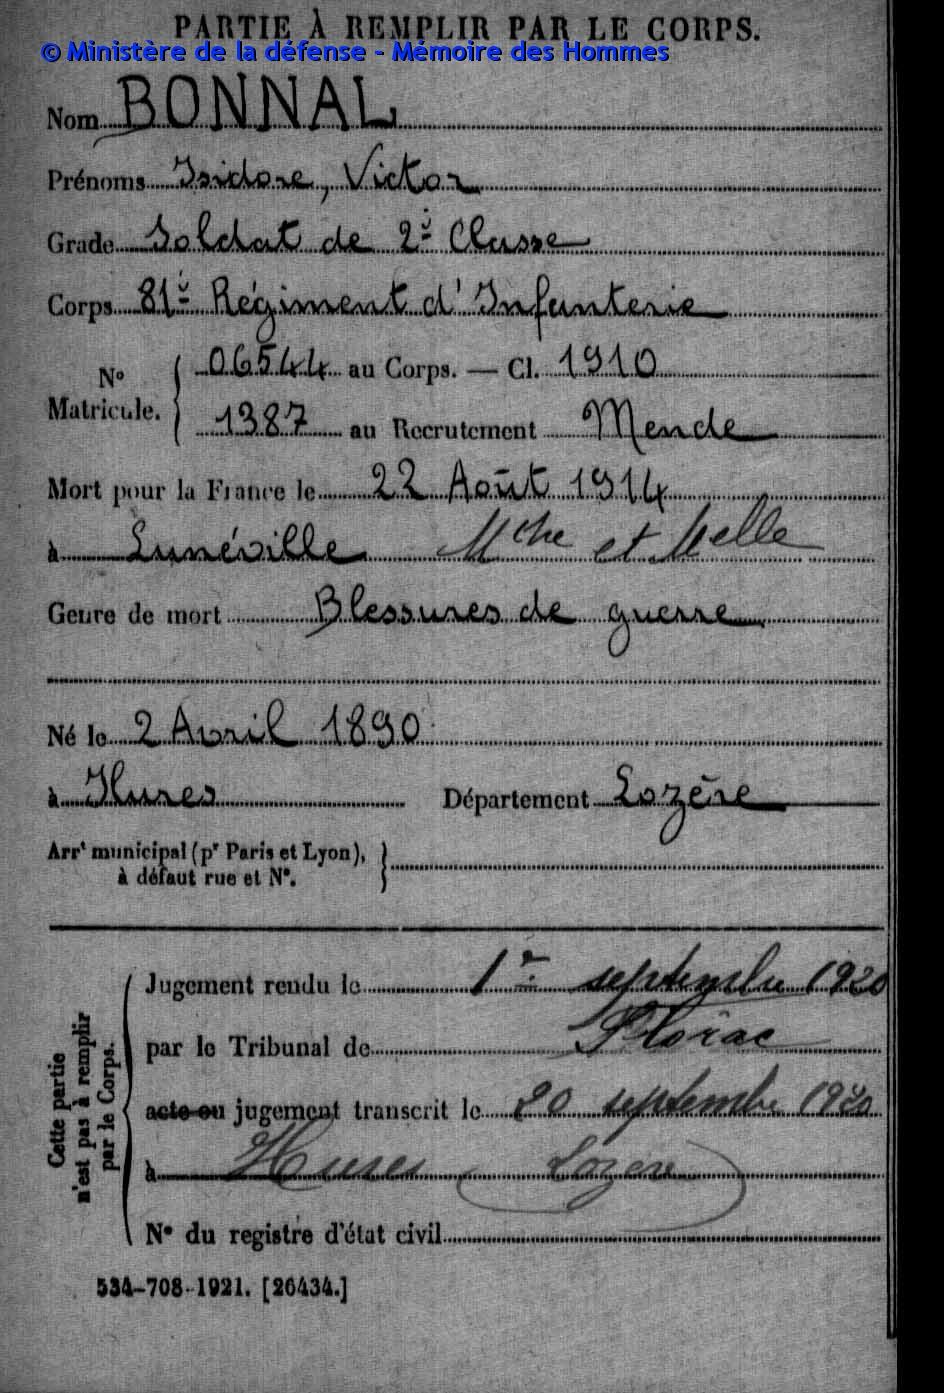 PARTIE À REMPLIR PAR LE CORPS.
© Ministère de la défense - Mémoire des Hommes
Nom BONNAL
Prénoms Isidore, Victor
Grade Soldat de 2è Classe
Corps 81è Régiment d'Infanterie
No Matricule. { 06544 au Corps. — Cl. 1910
1387 au Recrutement Mende
Mort pour la France le 22 Août 1914
à Lunéville Mthe et Melle
Genre de mort Blessures de guerre
Né le 2 Avril 1890
à Hures Département Lozère
Arrt municipal (pr Paris et Lyon),
à défaut rue et No.
Cette partie n'est pas à remplir par le Corps.
Jugement rendu le 1er septembre 1920
par le Tribunal de Florac
acte ou jugement transcrit le 20 septembre 1920
à Hures (Lozère)
No du registre d'état civil
534-708-1921. [26434.]